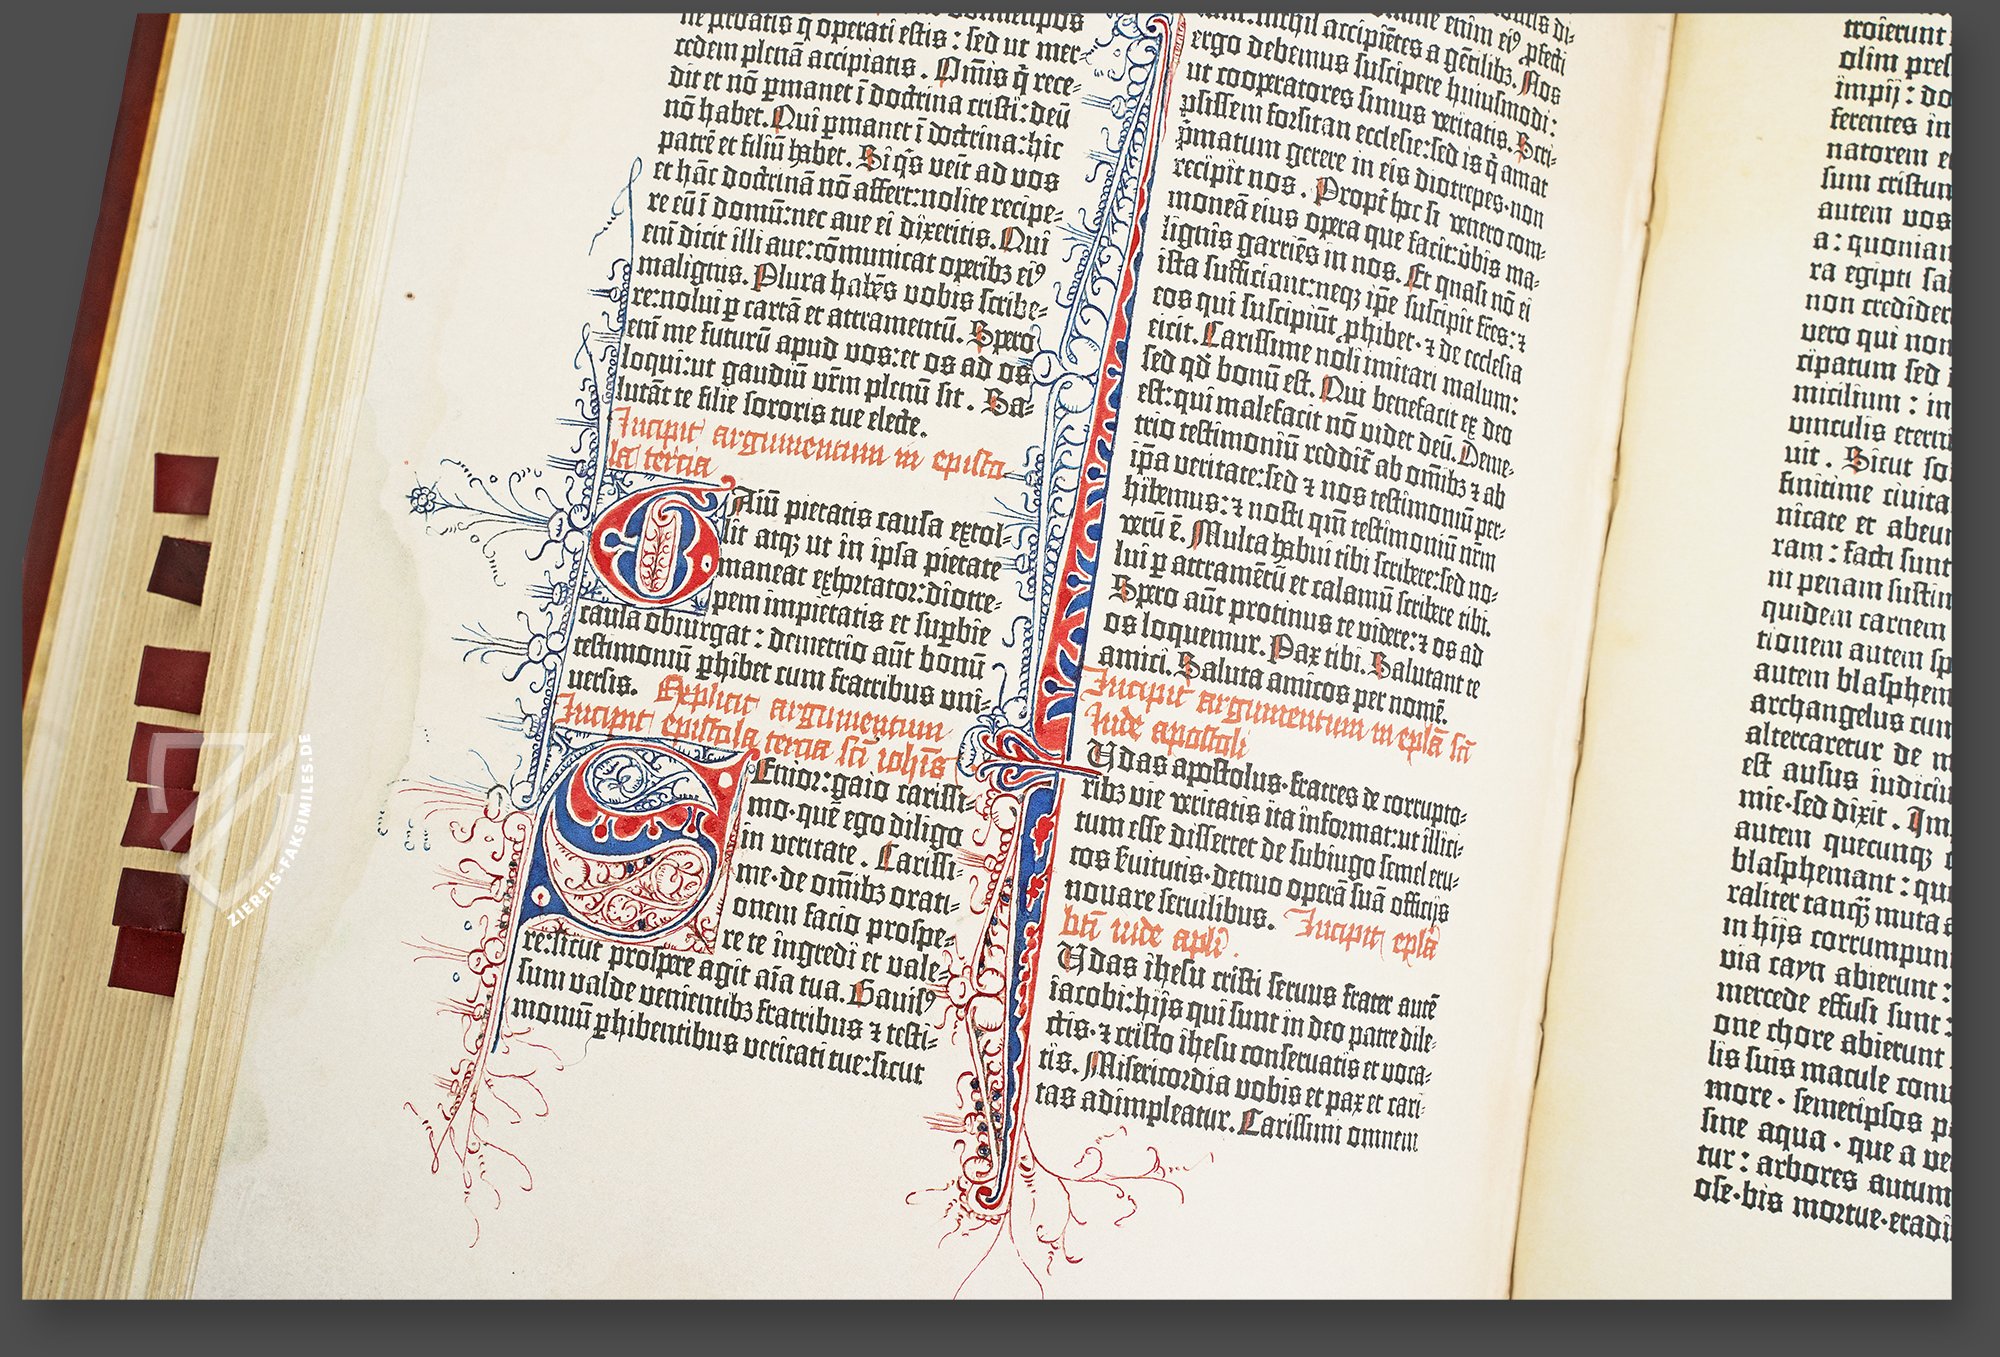 ne perdatis q̄ operati estis : sed ut mer-
cedem plenā accipiatis . Om̄is q̄ rece-
dit et nō ꝑmanet ī doctrina cristi : deū
nō habet . Qui ꝑmanet ī doctrina : hic
patrē et filiū habet . Si q̄s veīt ad vos
et hāc doctrinā nō affert : nolite recipe-
re eū ī domū : nec aue ei dixeritis . Qui
enī dicit illi aue : cōmunicat operibꝫ eiꝰ
malignis . Plura habēs vobis scribe-
re : nolui ꝑ cartā et attramentū . Spero
enī me futurū apud vos : et os ad os
loqui : ut gaudiū vr̄m plenū sit . Sa-
lutāt te filie sororis tue electe .
Incipit argumentum in episto
la tercia
GAiū pietatis causa extol-
lit atqꝫ ut in ipsa pietate
maneat exhortator : diotre-
pem impietatis et suꝑbie
causa obiurgat : demetrio aūt bonū
testimoniū ꝑhibet cum fratribus vni-
uersis . Explicit argumentum
Incipit epistola tercia sc̄i ioh̄is
SEnior : gaio carissi-
mo · quē ego diligo
in veritate . Carissi-
me · de om̄ibꝫ orati-
onem facio prospe-
re te ingredi et vale-
re : sicut prospere agit aīa tua . Gauisꝰ
sum valde venientibꝫ fratribus ⁊ testi-
moniū ꝑhibentibus veritati tue : sicut
enim eiꝰ ꝓfecti
sunt : nichil accipiētes a gētilibꝫ . Nos
ergo debemus suscipere huiusmodi :
ut cooperatores simus veritatis . Scri-
psissem forsitan ecclesie : sed is q̄ amat
p̄matum gerere in eis diotrepes · non
recipit nos . Propt̄ hoc si venero com-
moneā eius opera que facit : v̄bis ma-
lignis garriēs in nos . Et quasi nō ei
ista sufficiant : neqꝫ ip̄e suscipit fr̄es : ⁊
eos qui suscipiūt ꝓhibet · ⁊ de ecclesia
eicit . Carissime noli imitari malum :
sed qd̄ bonū est . Qui benefacit ex deo
est : qui malefacit nō videt deū . Deme-
trio testimoniū reddit̄ ab om̄ibꝫ ⁊ ab
ip̄a veritate : sed ⁊ nos testimoniū per-
hibemus : ⁊ nosti qm̄ testimoniū nr̄m
verū ē . Multa habui tibi scribere : sed no-
lui ꝑ attramētū et calamū scribere tibi .
Spero aūt protinus te videre : ⁊ os ad
os loquemur . Pax tibi . Salutant te
amici . Saluta amicos per nomē .
Incipit argumentum in epl̄ā sc̄i
Iude apostoli
IUdas apostolus · fratres de corrupto-
ribꝫ vie veritatis ita informat : ut illici-
tum esse disserret de subiugo semel eru-
tos seruitutis · denuo operā suā officijs
nouare seruilibus . Incipit epl̄ā
bt̄i iude apl̄i .
IUdas ihesu cristi seruus frater autē
iacobi : hijs qui sunt in deo patre dile-
ctis · ⁊ cristo ihesu conseruatis et voca-
tis . Misericordia vobis et pax et cari-
tas adimpleatur . Carissimi omnem
troierunt
olim pres
impij : do
ferentes in
natorem e
sum cristun
autem vos
a : quonian
ra egipti sal
non credider
vero qui non
cipatum sed
micilium : in
vinculis eterni
uit . Sicut so
finitime ciuita
nicate et abeun
ram : facti sunt
ni penam sustin
quidem carnem
tionem autem sp
autem blasphem
archangelus cum
altercaretur de m
est ausus iudiciu
mie · sed dixit . Im
autem quecunqꝫ
blasphemant : qu
raliter tanqꝫ muta a
in hijs corrumpun
via cayn abierunt :
mercede effusi sunt :
one chore abierunt
lis suis macule conu
more · semetipsos p
sine aqua · que a ve
tur : arbores autum
ose · bis mortue · eradi
ZIEREIS-FAKSIMILES.DE